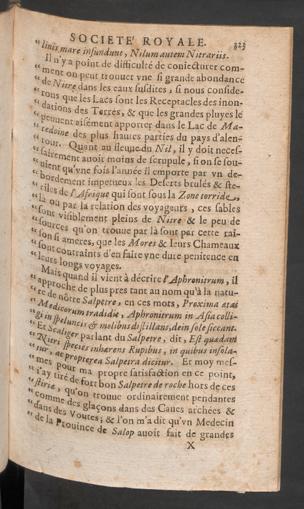 SOCIETE' ROYALE. 323
" linis, mare infundunt, Nilum autem Nitrariis.
Il n'y a point de difficulté de coniecturer com-
" ment on peut trouuer vne si grande abondance
" de Nitre dans les eaux susdites, si nous conside-
" rons que les Lacs sont les Receptacles des inon-
" dations des Terres, & que les grandes pluyes le
" peuuent aisément apporter dans le Lac de Ma-
" cedoine des plus hautes parties du pays d'alen-
" tour. Quant au fleuue du Nil, il y doit neces-
" sairement auoir moins de scrupule, si on se sou-
" uient qu'vne fois l'année il emporte par vn de-
" bordement impetueux les Deserts brulés & ste-
" riles de l'Afrique qui sont sous la Zone torride,
" là où par la relation des voyageurs, ces sables
" sont visiblement pleins de Nitre & le peu de
" sources qu'on trouue par là sont par cette rai-
" son si ameres, que les Mores & leurs Chameaux
" sont contraints d'en faire vne dure penitence en
" leurs longs voyages.
" Mais quand il vient à décrire l'Aphronitrum, il
" approche de plus prés tant au nom qu'à la natu-
" re de nôtre Salpetre, en ces mots, Proxima ætas
" Medicorum tradidit, Aphronitrum in Asia colli-
" gi in speluncis & molibus distillans, dein sole siccant.
" Et Scaliger parlant du Salpetre, dit, Est quædam
" Nitri species inhærens Rupibus, in quibus insola-
" tur, ac propterea Salpetra dicitur. Et moy mes-
" mes pour ma propre satisfaction en ce point,
" i'ay tiré de fort bon Salpetre de roche hors de ces
" stiriæ, qu'on trouue ordinairement pendantes
" comme des glaçons dans des Caues archées &
" dans des Voutes; & l'on m'a dit qu'vn Medecin
" de la Prouince de Salop auoit fait de grandes
X